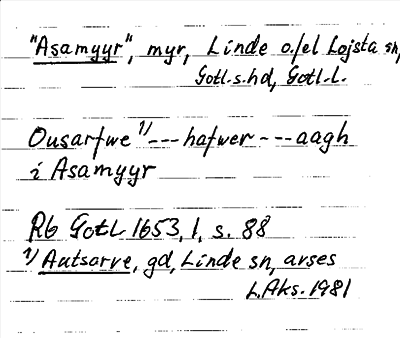 "Asamyyr", myr, Linde o/el Lojsta sn,
Gotl. s. hd, Gotl. l.
Ousarfwe 1) --- hafwer --- aagh
i Asamyyr
Rb Gotl 1653, 1, s. 88
1) Autsarve, gd, Linde sn, arses
L.Aks. 1981